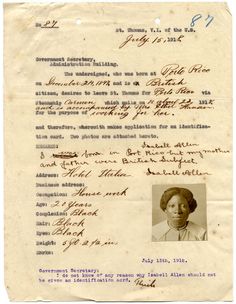 No 87
87
St. Thomas, V.I. of the U.S.
July 15, 1918
Government Secretary,
Administration Building.
The undersigned, who was born at Porto Rico
on December 24, 1897, and is a British
citizen, desires to leave St. Thomas for Porto Rico via
Steamship Carmen which sails
and is accompanied by
for the purpose of working for her
and therefore, herewith makes application for an identifica-
tion card. Two photos are attached hereto.
REMARKS: Isabell Allen
I was born in Port Rico but my mother
and father were British Subject.
Address: Hotel Italia Isabell Allen
Business address:
Occupation: House work
Age: 20 years
Complexion: Black
Hair: Black
Eyes: Black
Height: 5 ft 2 ½ in
Marks:
July 15th, 1918.
Government Secretary:
I do not know of any reason why Isabell Allen should not
be given an identification card.